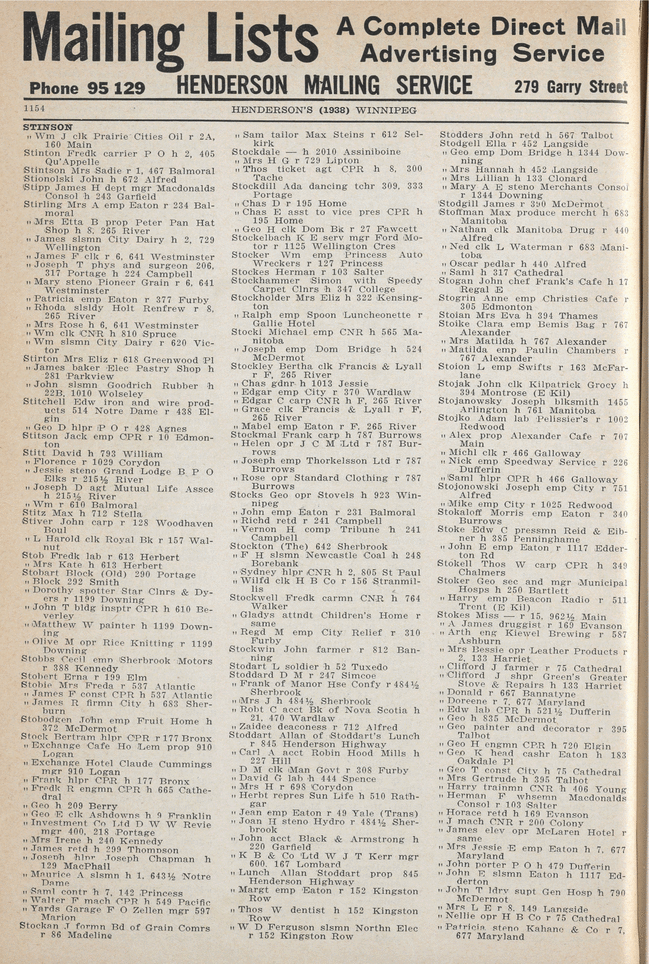 Mailing Lists
A Complete Direct Mail
Advertising Service
Phone 95 129 HENDERSON MAILING SERVICE 279 Garry Street
1154 HENDERSON'S (1938) WINNIPEG
STINSON
" Wm J clk Prairie Cities Oil r 2A,
160 Main
Stinton Fredk carrier P O h 2, 405
Qu'Appelle
Stintson Mrs Sadie r 1, 467 Balmoral
Stionolski John h 672 Alfred
Stipp James H dept mgr Macdonalds
Consol h 243 Garfield
Stirling Mrs A emp Eaton r 234 Bal-
moral
" Mrs Etta B prop Peter Pan Hat
Shop h 8, 265 River
" James slsmn City Dairy h 2, 729
Wellington
" James F clk r 6, 641 Westminster
" Joseph T phys and surgeon 206,
317 Portage h 224 Campbell
" Mary steno Pioneer Grain r 6, 641
Westminster
" Patricia emp Eaton r 377 Furby
" Rhoda slsldy Holt Renfrew r 8,
265 River
" Mrs Rose h 6, 641 Westminster
" Wm clk CNR h 810 Spruce
" Wm slsmn City Dairy r 620 Vic-
tor
Stirton Mrs Eliz r 618 Greenwood Pl
" James baker Elec Pastry Shop h
281 Parkview
" John slsmn Goodrich Rubber h
22F, 1010 Wolseley
Stitchell Edw iron and wire prod-
ucts 514 Notre Dame r 438 El-
gin
" Geo D hlpr P O r 428 Agnes
Stitson Jack emp CPR r 10 Edmon-
ton
Stitt David h 793 William
" Florence r 1029 Corydon
" Jessie steno Grand Lodge B P O
Elks r 215½ River
" Joseph D agt Mutual Life Assce
h 215½ River
" Wm r 610 Balmoral
Stitz Max h 712 Stella
Stiver John carp r 128 Woodhaven
Boul
" L Harold clk Royal Bk r 157 Wal-
nut
Stob Fredk lab r 613 Herbert
" Mrs Kate h 613 Herbert
Stobart Block (Old) 290 Portage
" Block 292 Smith
" Dorothy spotter Star Clnrs & Dy-
ers r 1199 Downing
" John T bldg insptr CPR h 610 Be-
verley
" Matthew W painter h 1199 Down-
ing
" Olive M opr Rice Knitting r 1199
Downing
Stobbs Cecil emn Sherbrook Motors
r 388 Kennedy
Stobert Erna r 199 Elm
Stobie Mrs Freda r 537 Atlantic
" James P const CPR h 537 Atlantic
" James R firmn City h 683 Sher-
burn
Stobodgen John emp Fruit Home h
372 McDermot
Stock Bertram hlpr CPR r 177 Bronx
" Exchange Cafe Ho Lem prop 910
Logan
" Exchange Hotel Claude Cummings
mgr 910 Logan
" Frank hlpr CPR h 177 Bronx
" Fredk R engmn CPR h 665 Cathe-
dral
" Geo h 209 Berry
" Geo E clk Ashdowns h 9 Franklin
" Investment Co Ltd D W W Revie
mgr 400, 218 Portage
" Mrs Irene h 240 Kennedy
" James retd h 299 Thompson
" Joseph hlpr Joseph Chapman h
129 MacPhail
" Maurice A slsmn h 1, 643½ Notre
Dame
" Saml contr h 7, 142 Princess
" Walter F mach CPR h 549 Pacific
" Yards Garage F O Zellen mgr 597
Marion
Stockan J formn Bd of Grain Comrs
r 86 Madeline
" Sam tailor Max Steins r 612 Sel-
kirk
Stockdale — h 2010 Assiniboine
" Mrs H G r 729 Lipton
" Thos ticket agt CPR h 8, 300
Tache
Stockdill Ada dancing tchr 309, 333
Portage
" Chas D r 195 Home
" Chas E asst to vice pres CPR h
195 Home
" Geo H clk Dom Bk r 27 Fawcett
Stockelbach K E serv mgr Ford Mo-
tor r 1125 Wellington Cres
Stocker Wm emp Princess Auto
Wreckers r 127 Princess
Stockes Herman r 103 Salter
Stockhammer Simon with Speedy
Carpet Clnrs h 347 College
Stockholder Mrs Eliz h 322 Kensing-
ton
" Ralph emp Spoon Luncheonette r
Gallie Hotel
Stocki Michael emp CNR h 565 Ma-
nitoba
" Joseph emp Dom Bridge h 524
McDermot
Stockley Bertha clk Francis & Lyall
r F, 265 River
" Chas gdnr h 1013 Jessie
" Edgar emp City r 370 Wardlaw
" Edgar C carp CNR h F, 265 River
" Grace clk Francis & Lyall r F,
265 River
" Mabel emp Eaton r F, 265 River
Stockmal Frank carp h 787 Burrows
" Helen opr J C M Ltd r 787 Bur-
rows
" Joseph emp Thorkelsson Ltd r 787
Burrows
" Rose opr Standard Clothing r 787
Burrows
Stocks Geo opr Stovels h 923 Win-
nipeg
" John emp Eaton r 231 Balmoral
" Richd retd r 241 Campbell
" Vernon H comp Tribune h 241
Campbell
Stockton (The) 642 Sherbrook
" F H slsmn Newcastle Coal h 248
Borebank
" Sydney hlpr CNR h 2, 805 St Paul
" Wilfd clk H B Co r 156 Stranmil-
lis
Stockwell Fredk carmn CNR h 764
Walker
" Gladys attndt Children's Home r
same
" Regd M emp City Relief r 310
Furby
Stockwin John farmer r 812 Ban-
ning
Stodart L soldier h 52 Tuxedo
Stoddard D M r 247 Simcoe
" Frank of Manor Hse Confy r 484½
Sherbrook
" Mrs J h 484½ Sherbrook
" Robt C acct Bk of Nova Scotia h
21, 470 Wardlaw
" Zaidee deaconess r 712 Alfred
Stoddart Allan of Stoddart's Lunch
r 845 Henderson Highway
" Carl A acct Robin Hood Mills h
227 Hill
" D M clk Man Govt r 308 Furby
" David G lab h 444 Spence
" Mrs H r 698 Corydon
" Herbt repres Sun Life h 510 Rath-
gar
" Jean emp Eaton r 49 Yale (Trans)
" Joan H steno Hydro r 484½ Sher-
brook
" John acct Black & Armstrong h
220 Garfield
" K B & Co Ltd W J T Kerr mgr
600, 167 Lombard
" Lunch Allan Stoddart prop 845
Henderson Highway
" Margt emp Eaton r 152 Kingston
Row
" Thos W dentist h 152 Kingston
Row
" W D Ferguson slsmn Northn Elec
r 152 Kingston Row
Stodders John retd h 567 Talbot
Stodgell Ella r 452 Langside
" Geo emp Dom Bridge h 1344 Dow-
ning
" Mrs Hannah h 452 Langside
" Mrs Lillian h 133 Clonard
" Mary A E steno Merchants Consol
r 1344 Downing
Stodgill James r 390 McDermot
Stoffman Max produce mercht h 683
Manitoba
" Nathan clk Manitoba Drug r 440
Alfred
" Ned clk L Waterman r 683 Mani-
toba
" Oscar pedlar h 440 Alfred
" Saml h 317 Cathedral
Stogan John chef Frank's Cafe h 17
Regal B
Stogrin Anne emp Christies Cafe r
305 Edmonton
Stoian Mrs Eva h 394 Thames
Stoike Clara emp Bemis Bag r 767
Alexander
" Mrs Matilda h 767 Alexander
" Matilda emp Paulin Chambers r
767 Alexander
Stoion L emp Swifts r 163 McFar-
lane
Stojak John clk Kilpatrick Grocy h
394 Montrose (E Kil)
Stojanowsky Joseph blksmith 1455
Arlington h 761 Manitoba
Stojko Adam lab Pelissier's r 1002
Redwood
" Alex prop Alexander Cafe r 707
Main
" Michl clk r 466 Galloway
" Nick emp Speedway Service r 226
Dufferin
" Saml hlpr CPR h 466 Galloway
Stojonowski Joseph emp City r 751
Alfred
" Mike emp City r 1025 Redwood
Stokaloff Morris emp Eaton r 340
Burrows
Stoke Edw C pressmn Reid & Eib-
ner h 385 Penninghame
" John E emp Eaton r 1117 Edder-
ton Rd
Stokell Thos W carp CPR h 349
Chalmers
Stoker Geo sec and mgr Municipal
Hosps h 250 Bartlett
" Harry emp Beacon Radio r 511
Trent (E Kil)
Stokes Miss — r 15, 962½ Main
" A James druggist r 169 Evanson
" Arth eng Kiewel Brewing r 587
Ashburn
" Mrs Bessie opr Leather Products r
2, 133 Harriet
" Clifford J farmer r 75 Cathedral
" Clifford J shpr Green's Greater
Stove & Repairs h 133 Harriet
" Donald r 667 Bannatyne
" Doreene r 7, 677 Maryland
" Edw lab CPR h 521½ Dufferin
" Geo h 835 McDermot
" Geo painter and decorator r 395
Talbot
" Geo H engmn CPR h 720 Elgin
" Geo K head cashr Eaton h 183
Oakdale Pl
" Geo T const City h 75 Cathedral
" Mrs Gertrude h 395 Talbot
" Harry trainmn CNR h 406 Young
" Herman F whsemn Macdonalds
Consol r 103 Salter
" Horace retd h 169 Evanson
" J mach CNR r 200 Colony
" James elev opr McLaren Hotel r
same
" Mrs Jessie E emp Eaton h 7, 677
Maryland
" John porter P O h 479 Dufferin
" John E slsmn Eaton h 1117 Ed-
derton
" John T ldry supt Gen Hosp h 790
McDermot
" Mrs L E r 8, 149 Langside
" Nellie opr H B Co r 75 Cathedral
" Patricia steno Kahane & Co r 7,
677 Maryland